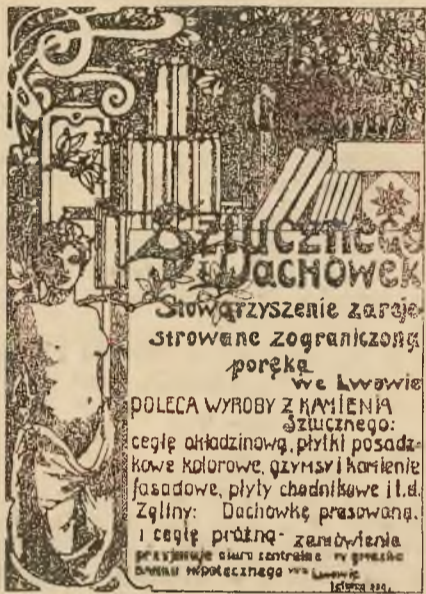 Sztucznego
i Dachówek
Stowarzyszenie zareje-
strowane z ograniczoną
poręką
we Lwowie
POLECA WYROBY Z KAMIENIA
Sztucznego:
cegłę okładzinową, płytki posadz-
kowe kolorowe, gzymsy i kamienie
fasadowe, płyty chodnikowe i t.d.
Z gliny: Dachówkę prasowaną,
i cegłę próżną - zamówienia
przyjmuje biuro centralne w gmachu
Banku Hipotecznego we Lwowie